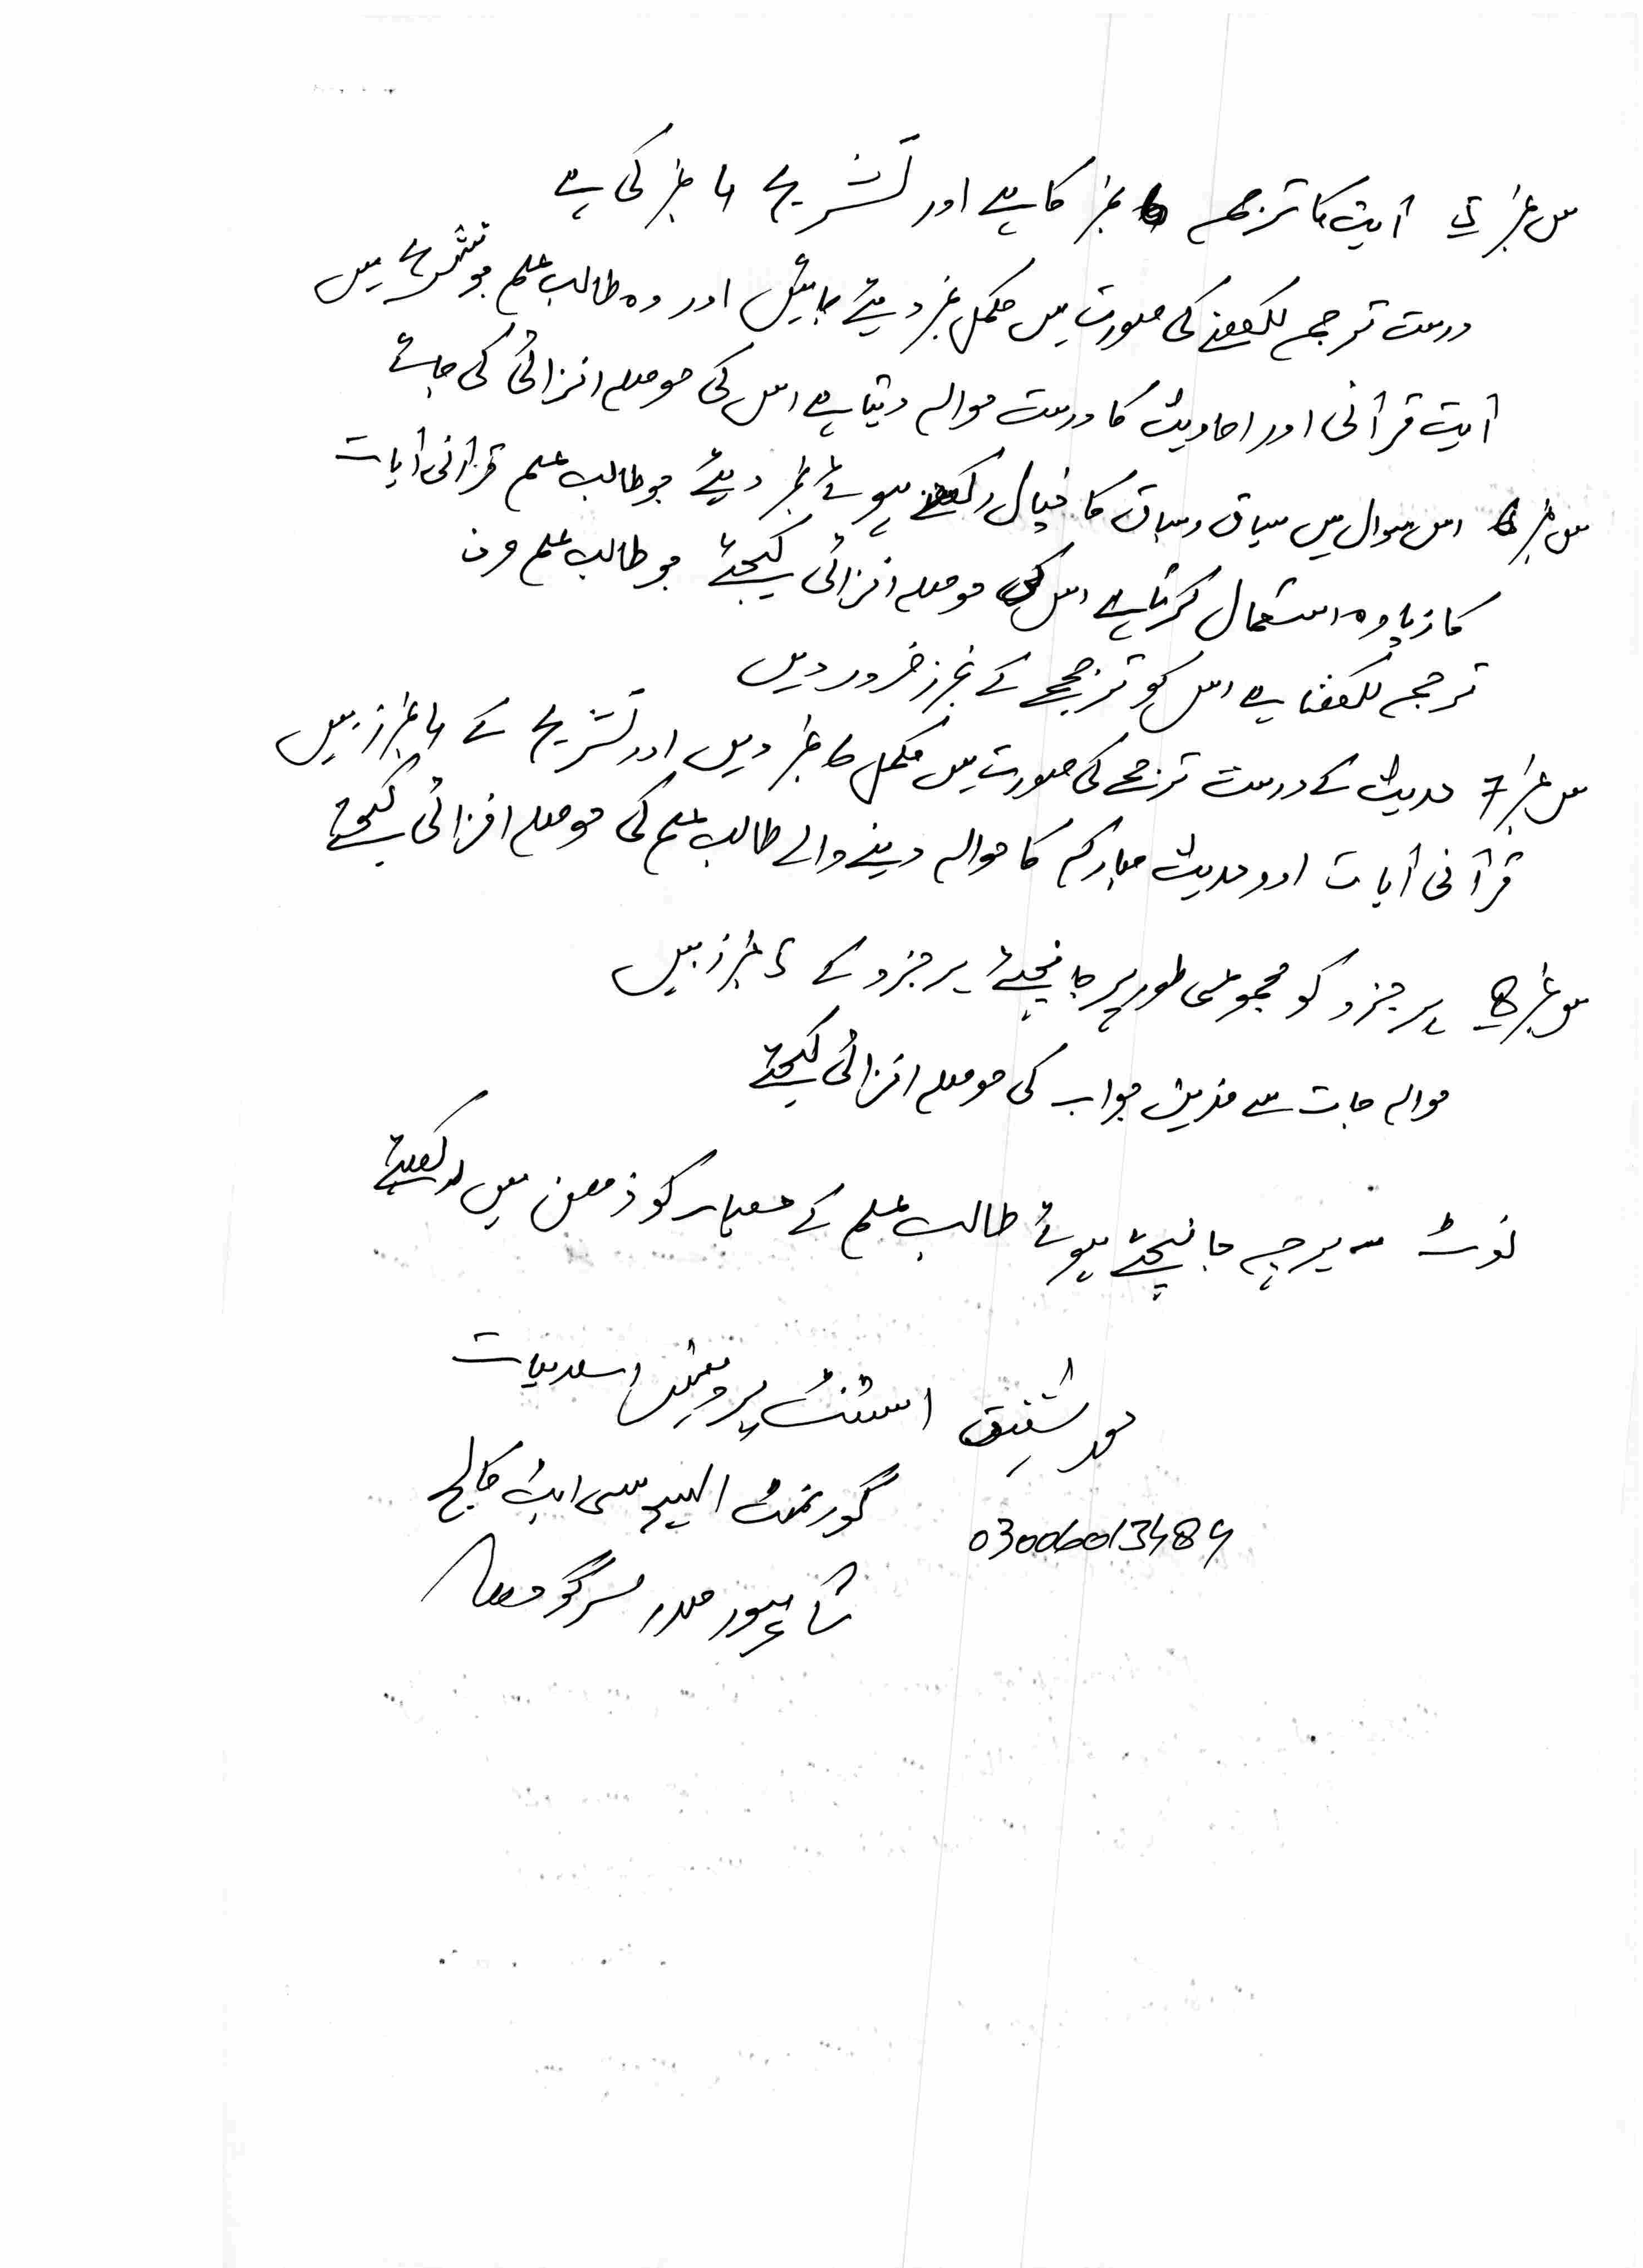 س نمبر 5 آیت کا ترجمہ 6 نمبر کا ہے اور تشریح 14 نمبر کی ہے
درست ترجمہ لکھنے کی صورت میں مکمل نمبر دیئے جائیں اور وہ طالب علم جو تشریح میں
آیت قرآنی اور احادیث کا درست حوالہ دیتا ہے اس کی حوصلہ افزائی کی جائے
س نمبر 6 اس سوال میں سیاق و سباق کا خیال رکھتے ہوئے نمبر دیئے جو طالب علم قرآنی آیات
کا زیادہ استعمال کرتا ہے اس کی حوصلہ افزائی کیجئے جو طالب علم صرف
ترجمہ لکھتا ہے اس کو ترجمے کے نمبرز ضرور دیں
س نمبر 7 حدیث کے درست ترجمے کی صورت میں مکمل 6 نمبر دیں اور تشریح کے 14 نمبرز ہیں
قرآنی آیات اور حدیث مبارکہ کا حوالہ دینے والے طالب علم کی حوصلہ افزائی کیجئے
س نمبر 8 ہر جزو کو مجموعی طور پر جانچیئے ہر جزو کے نمبرز ہیں
حوالہ جات سے مزین جواب کی حوصلہ افزائی کیجئے
نوٹ - پرچہ جانچتے ہوئے طالب علم کے معیار کو ذہن میں رکھیئے
محمد شفیق اسسٹنٹ پروفیسر اسلامیات
گورنمنٹ ایسوسی ایٹ کالج
03006013484
شاہپور صدر سرگودھا